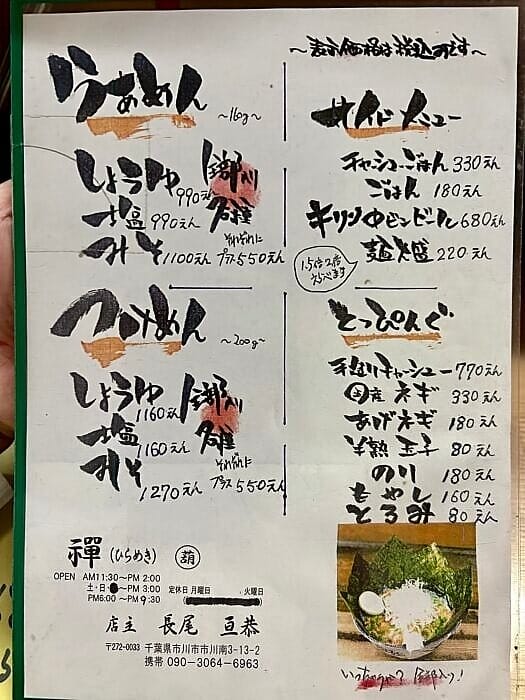 ～表示価格は税込みです～
らぁめん ～160g～
しょうゆ 990えん
塩 990えん
みそ 1100えん
全部入り
各種
それぞれに
プラス550えん
つけめん ～200g～
しょうゆ 1160えん
塩 1160えん
みそ 1270えん
全部入り
各種
それぞれに
プラス550えん
サイドメニュー
チャシューごはん 330えん
ごはん 180えん
キリン中ビンビール 680えん
麺大盛 220えん
1.5倍 2倍
えらべます
とっぴんぐ
手造りチャーシュー 770えん
国産 ネギ 330えん
あげネギ 180えん
半熟玉子 80えん
のり 180えん
もやし 160えん
とろみ 80えん
禪 (ひらめき) 葫
OPEN AM11:30～PM 2:00
土・日・ ～PM 3:00 定休日 月曜日 火曜日
PM6:00～PM 9:30
店主 長尾 亘恭
〒272-0033 千葉県市川市市川南3-13-2
携帯 090-3064-6963
いっちゃう？ 全部入り！